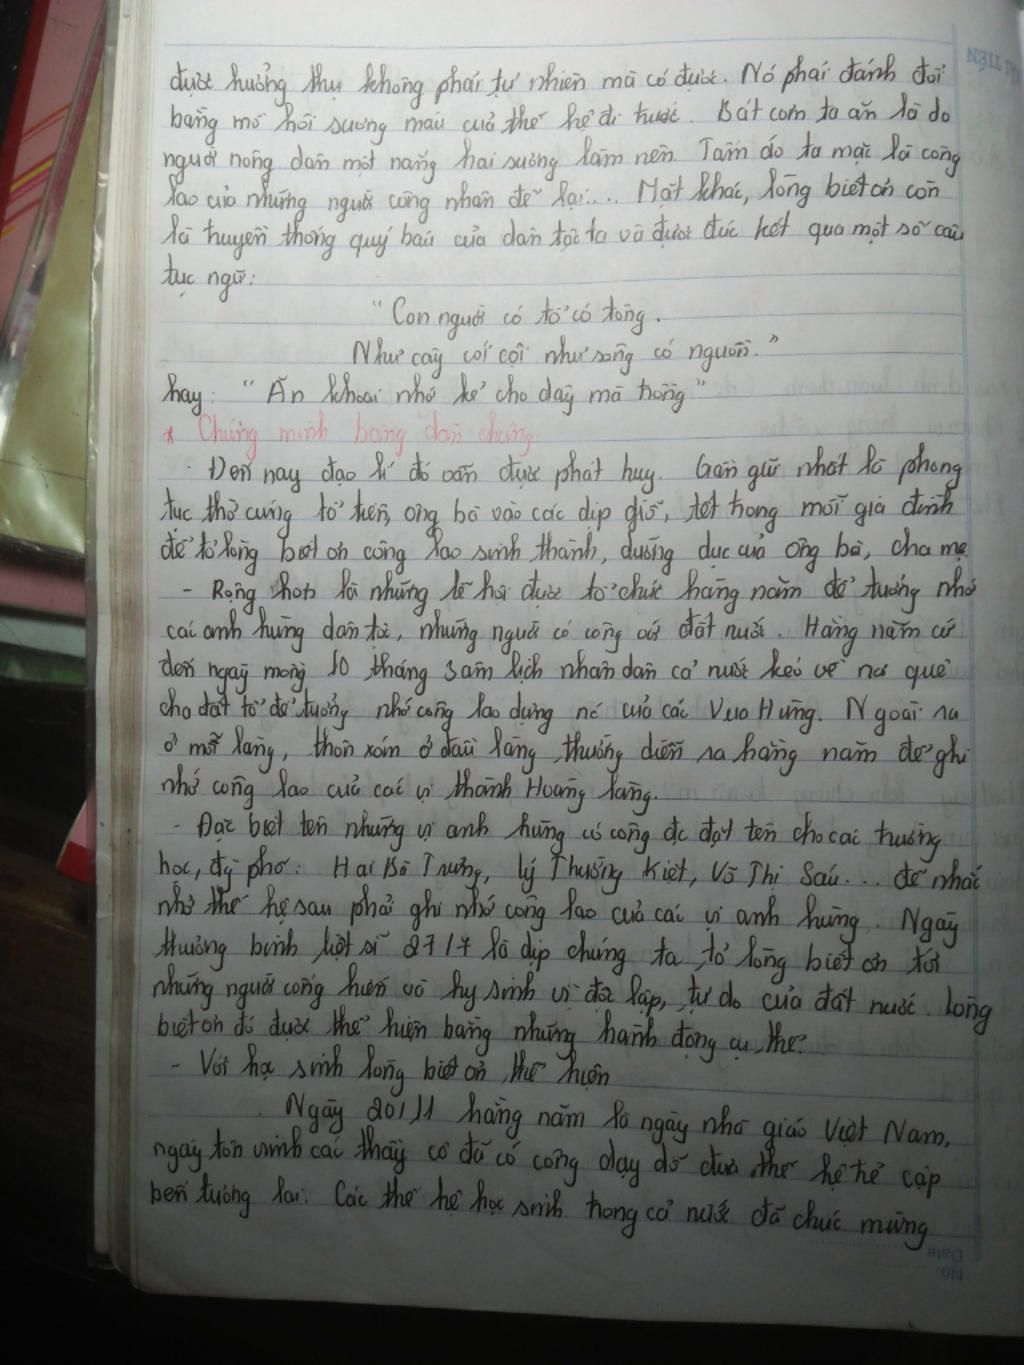 được hưởng thụ không phải tự nhiên mà có được. Nó phải đánh đổi
bằng mồ hôi sương máu của thế hệ đi trước. Bát cơm ta ăn là do
người nông dân một nắng hai sương làm nên. Tấm áo ta mặc là công
lao của những người công nhân để lại.... Mặt khác, lòng biết ơn còn
là truyền thống quý báu của dân tộc ta và được đúc kết qua một số câu
tục ngữ:
"Con người có tổ có tông.
Như cây có cội như sông có nguồn."
hay: "Ăn khoai nhớ kẻ cho dây mà trồng"
* Chứng minh bằng dẫn chứng.
- Đến nay đạo lí đó vẫn được phát huy. Gần giũ nhất là phong
tục thờ cúng tổ tiên, ông bà vào các dịp giỗ, tết trong mỗi gia đình
để tỏ lòng biết ơn công lao sinh thành, dưỡng dục của ông bà, cha mẹ
- Rộng hơn là những lễ hội được tổ chức hàng năm để tưởng nhớ
các anh hùng dân tộc, những người có công với đất nước. Hàng năm cứ
đến ngày mùng 10 tháng 3 âm lịch nhân dân cả nước kéo về nơi quê
cha đất tổ để tưởng nhớ công lao dựng nc của các Vua Hùng. Ngoài ra
ở mỗi làng, thôn xóm ở đầu làng thường diễn ra hàng năm để ghi
nhớ công lao của các vị thành Hoàng làng.
- Đặc biệt tên những vị anh hùng có công đc đặt tên cho các trường
học, đg phố: Hai Bà Trưng, Lý Thường Kiệt, Võ Thị Sáu... để nhắc
nhở thế hệ sau phải ghi nhớ công lao của các vị anh hùng. Ngày
thương binh liệt sĩ 27/7 là dịp chúng ta tỏ lòng biết ơn tới
những người cống hiến và hy sinh vì độc lập, tự do của đất nước. Lòng
biết ơn đó được thể hiện bằng những hành động cụ thể.
- Với học sinh lòng biết ơn thể hiện
Ngày 20/11 hàng năm là ngày nhà giáo Việt Nam,
ngày tôn vinh các thầy cô đã có công dạy dỗ đưa thế hệ trẻ cập
bến tương lai. Các thế hệ học sinh trong cả nước đã chúc mừng
No.
Date